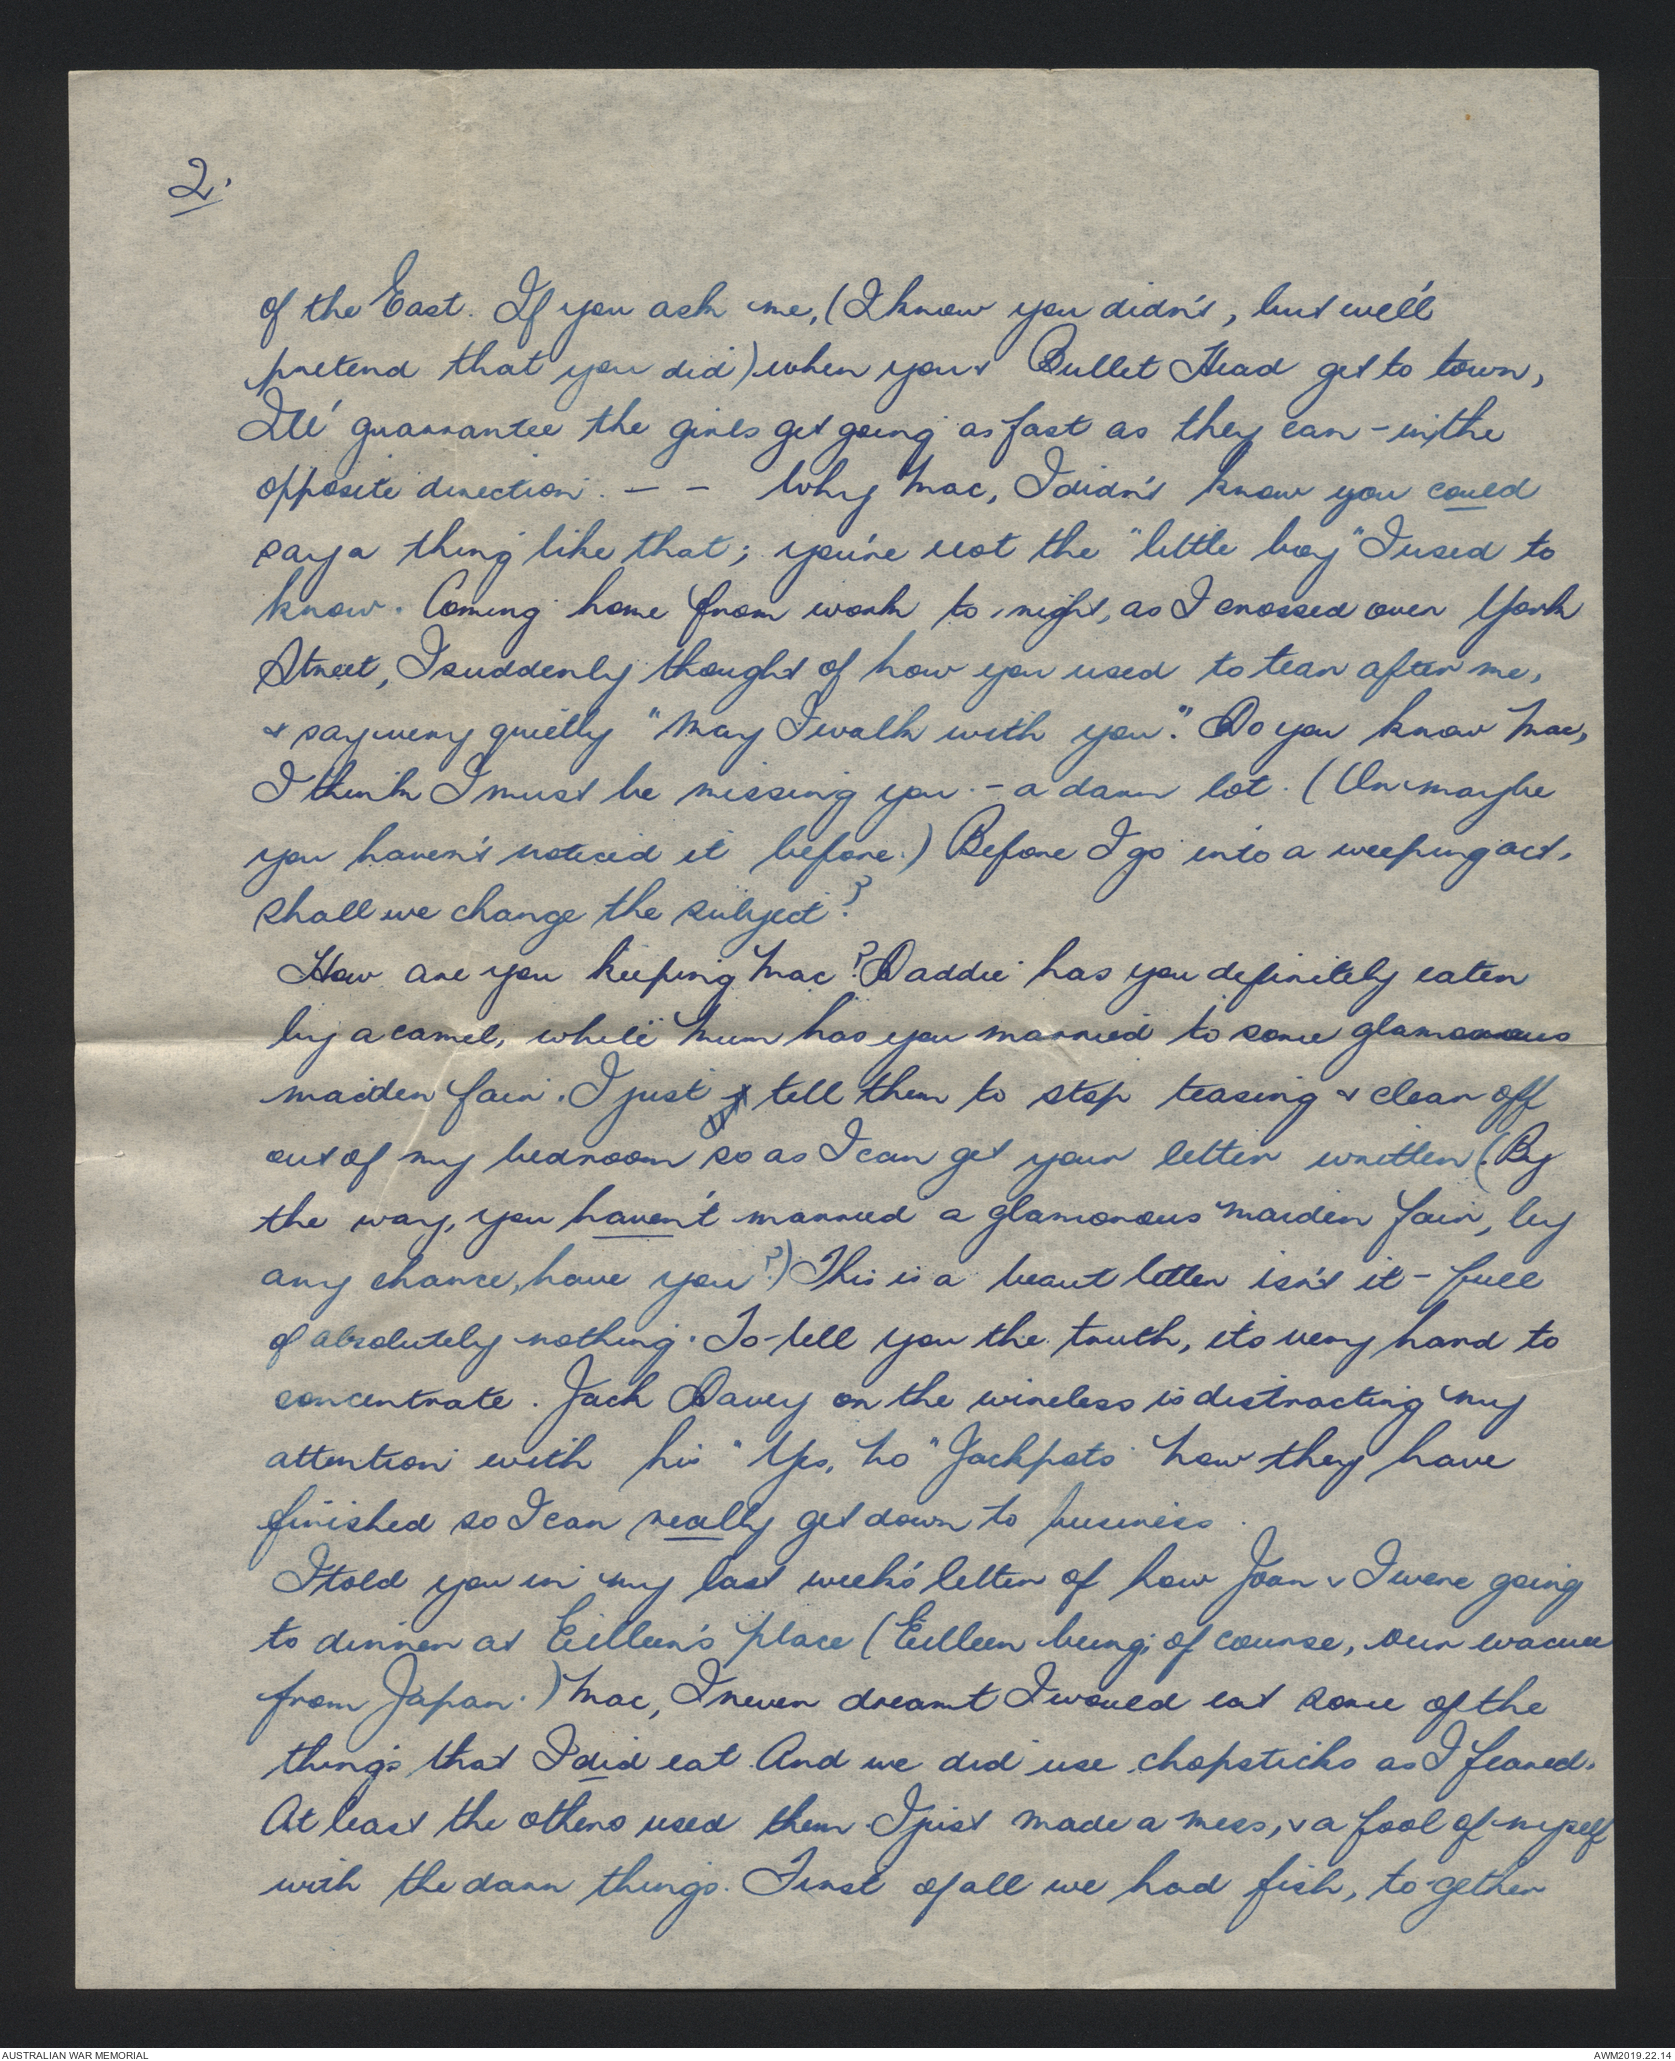 2.
of the East. If you ask me, (I know you didn't, but we'll
pretend that you did) when you & Bullet Head get to town,
I'll guarrantee the girls get going as fast as they can - in the
opposite direction. - - Why Mac, I didn't know you could
say a thing like that; you're not the "little boy" I used to
know. Coming home from work to night, as I crossed over York
Street, I suddenly thought of how you used to tear after me,
& say very quietly "May I walk with you". Do you know Mac,
I think I must be missing you. - a darn lot. (Or maybe
you haven't noticed it before.) Before I go into a weeping act,
shall we change the subject?
How are you keeping Mac? Daddie has you definitely eaten
by a camel, while Mum has you married to some glamorous
maiden fair. I just tell them to stop teasing & clear off
out of my bedroom so as I can get your letter written (By
the way, you haven't married a glamorous maiden fair, by
any chance, have you?) This is a beaut letter isn't it - full
of absolutely nothing. To tell you the truth, its very hard to
concentrate. Jack Davey on the wireless is distracting my
attention with his "Yes, No" Jackpots Now they have
finished so I can really get down to business.
I told you in my last week's letter of how Joan & I were going
to dinner at Eilleen's place (Eilleen being, of course, our evacuee
from Japan.) Mac, I never dreamt I would eat some of the
things that I did eat. And we did use chopsticks as I feared.
At least the others used them. I just made a mess, & a fool of myself
with the darn things. First of all we had fish, to-gether
AUSTRALIAN WAR MEMORIAL
AWM2019.22.14